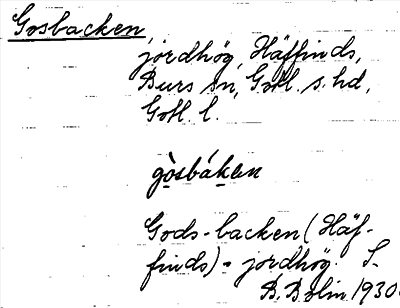 Gosbacken,
jordhög, Häffinds,
Burs sn, Gotl. s. hd,
Gotl. l.
gòsbáken
Gods-backen (Häf-
finds) = jordhög. S-
B. Bolin 1930.